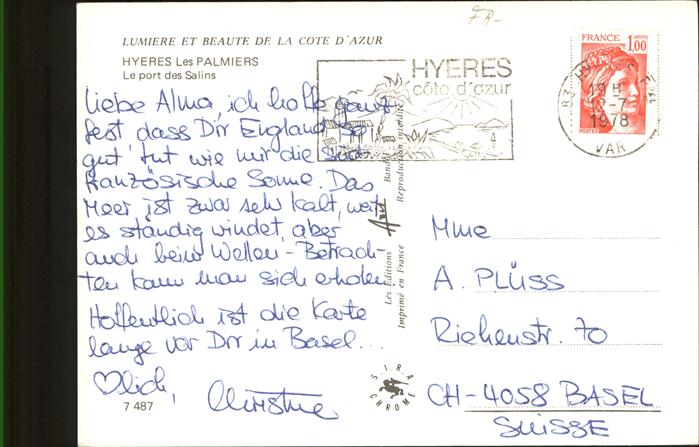 FR-
LUMIERE ET BEAUTE DE LA COTE D'AZUR
HYERES Les PALMIERS
Le port des Salins
Liebe Alma, ich hoffe ganz
fest dass Dir England so
gut tut wie mir die süd-
französische Sonne. Das
Meer ist zwar sehr kalt, weil
es ständig windet, aber
auch beim Wellen-Betrach-
ten kann man sich erholen.
Hoffentlich ist die Karte
lange vor Dir in Basel...
♡lich,
Christine
7 487
HYERES
côte d'azur
Les Editions Bandol
Imprimé en France Reproduction interdite
SIRA
CHROME
FRANCE 1,00
POSTES
83
19 H
12-7
1978
VAR
Mme
A. PLÜSS
Riehenstr. 70
CH-4058 BASEL
SUISSE